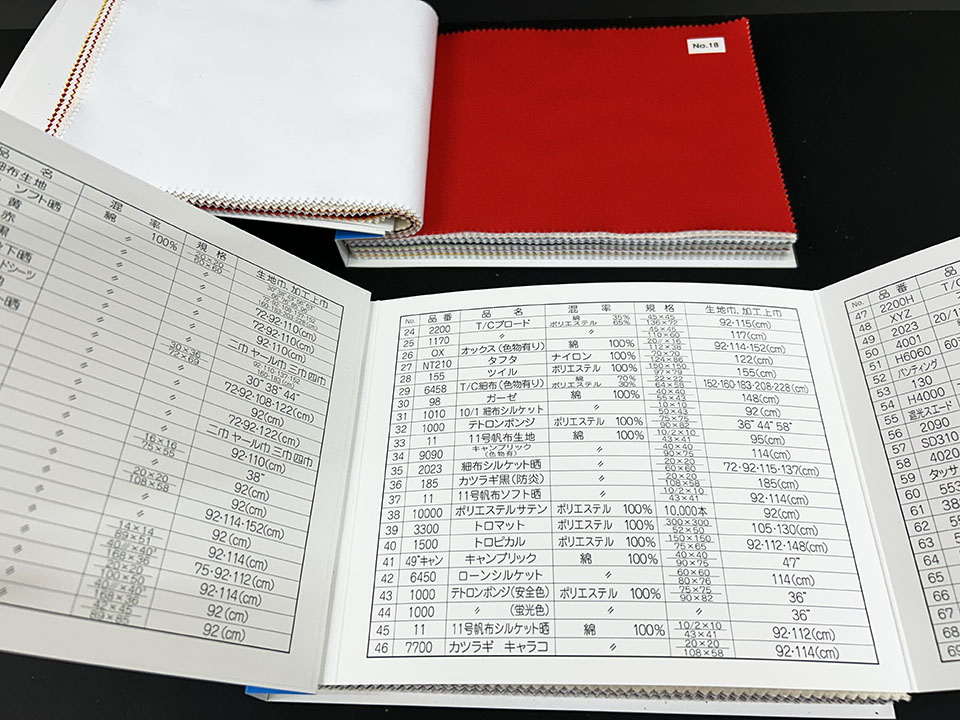 No.18
品 名
細布生地
ソフト晒
黄
赤
黒
下晒
ドシーツ
混 率
綿 100%
〃
規 格
20×20
60×60
〃
30×36
72×69
〃
16×16
75×55
〃
20×20
108×58
〃
14×14
89×51
生地巾、加工上巾
72・92・110(cm)
72・92・110(cm)
三巾 ヤール巾 三巾 四巾
30" 38" 44"
72・92・108・122(cm)
92(cm)
72・92・122(cm)
三巾 ヤール巾 三巾 四巾
92・110(cm)
38"
92(cm)
92・114・152(cm)
92(cm)
92・114(cm)
75・92・112(cm)
92・114(cm)
92(cm)
92(cm)
No. 品番 品 名 混 率 規 格 生地巾、加工上巾
24 2200 T/Cブロード 綿 35% ポリエステル 65% 45×45 136×72 92・115(cm)
25 1170 〃 〃 45×45 110×60 117(cm)
26 OX オックス(色物有り) 綿 100% 20//×16 112×38 92・114・152(cm)
27 NT210 タフタ ナイロン 100% 70×70 124×86 122(cm)
28 155 ツイル ポリエステル 100% 150×150 97×79 155(cm)
29 6458 T/C細布(色物有り) 綿 70% ポリエステル 30% 22×22 64×58 152・160・183・208・228(cm)
30 98 ガーゼ 綿 100% 40×40 55×43 148(cm)
31 1010 10/1 細布シルケット 〃 10×10 50×43 92(cm)
32 1000 テトロンポンジ ポリエステル 100% 75×75 90×82 36" 44" 58"
33 11 11号帆布生地 綿 100% 10/2×10 43×41 95(cm)
34 9090 キャンブリック (色物有) 〃 40×40 90×75 114(cm)
35 2023 細布シルケット晒 〃 20×20 60×60 72・92・115・137(cm)
36 185 カツラギ黒(防炎) 〃 20×20 108×58 185(cm)
37 11 11号帆布ソフト晒 〃 10/2×10 43×41 92・114(cm)
38 10000 ポリエステルサテン ポリエステル 100% 10,000本 92(cm)
39 3300 トロマット ポリエステル 100% 300×300 52×50 105・130(cm)
40 1500 トロピカル ポリエステル 100% 150×150 75×65 92・112・148(cm)
41 49"キャン キャンブリック 綿 100% 40×40 90×75 47"
42 6450 ローンシルケット 〃 60×60 80×76 114(cm)
43 1000 テトロンポンジ(安全色) ポリエステル 100% 75×75 90×82 36"
44 1000 〃 (蛍光色) 〃 〃 36"
45 11 11号帆布シルケット晒 綿 100% 10/2×10 43×41 92・112(cm)
46 7700 カツラギ キャラコ 〃 20×20 108×58 92・114(cm)
No. 品番 品
47 2200H T/C
48 XYZ
49 2023 20/1
50 4001
51 H6060 60
52 バンティング
53 130
54 H4000
55 遮光スエード
56 2090
57 SD310
58 4020
59 タッサ
60 553
61 38
62 5
63 5
64
65
66
67
68
69